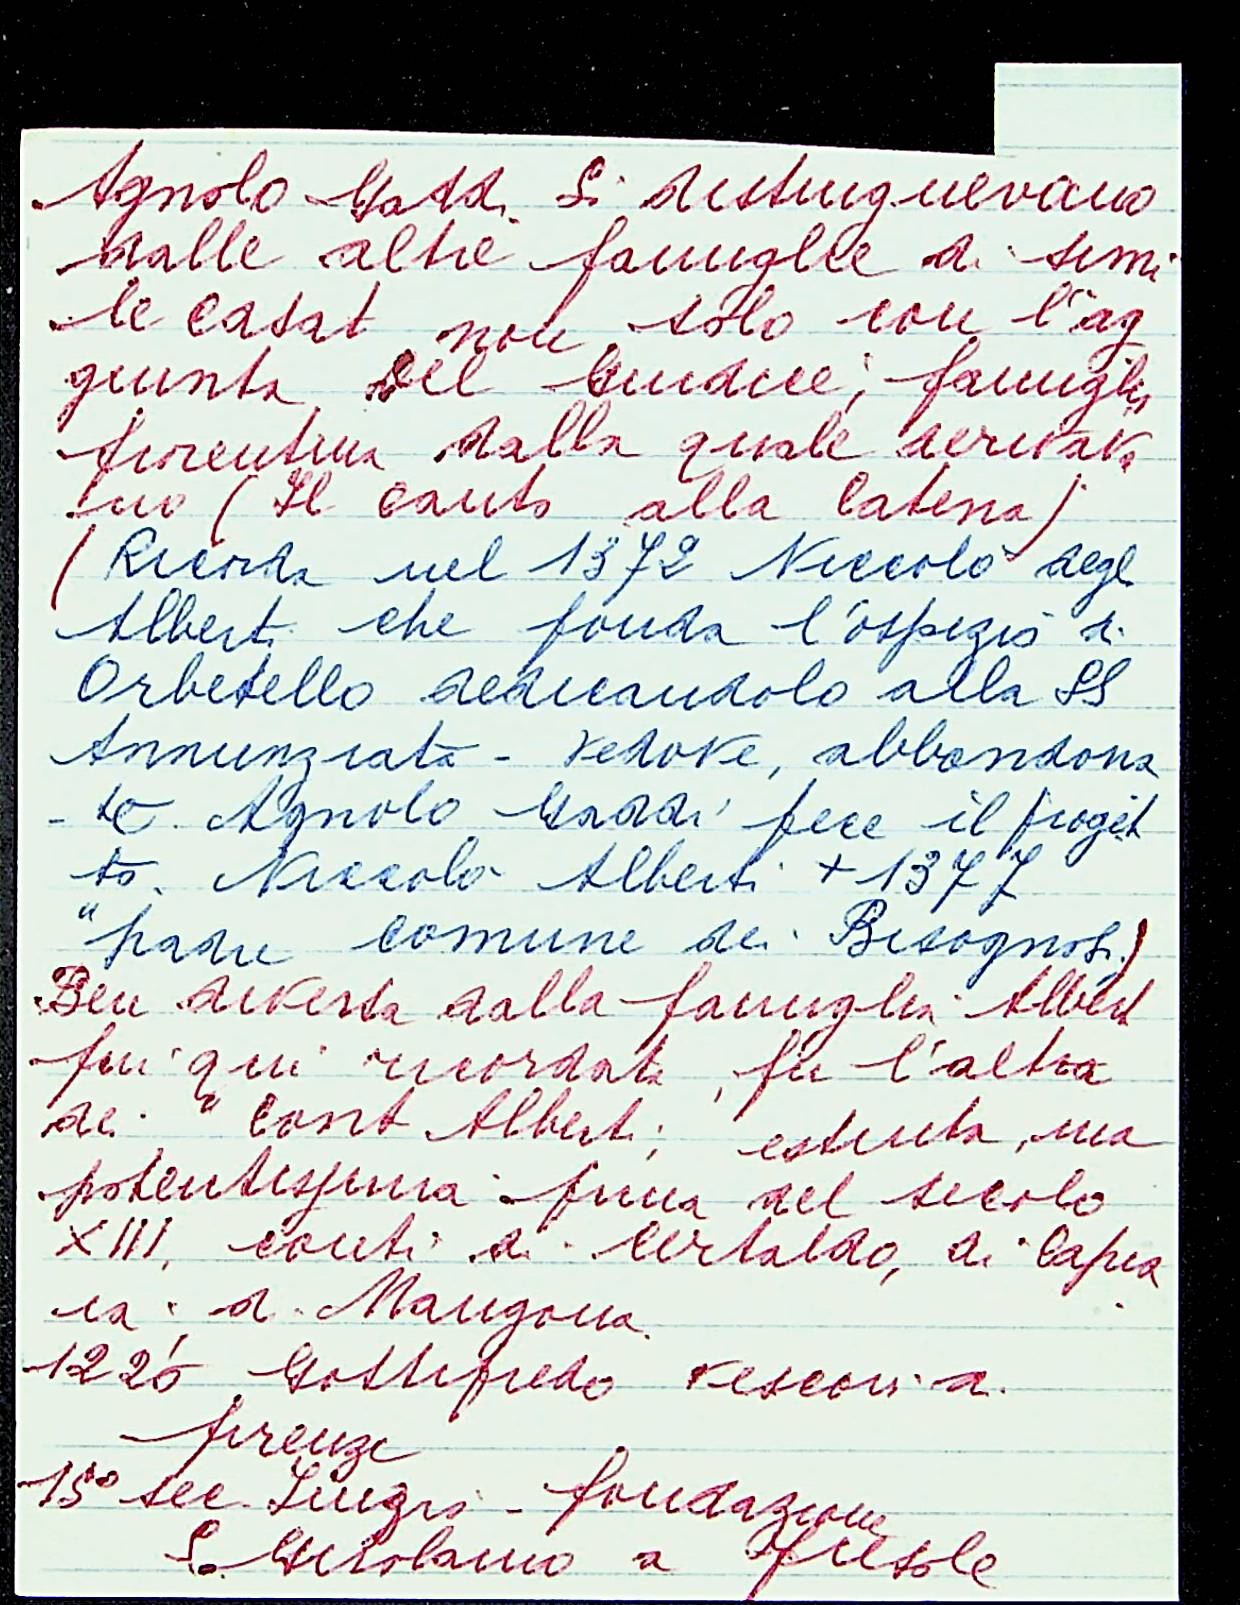 Agnolo Gaddi. Si distinguevano
dalle altre famiglie di simi
le casat non solo con l'ag
giunta del Giudice, famiglia
fiorentina dalla quale deriva
no (Il canto alla Catena)
(Ricorda nel 1372 Niccolò degl
Alberti che fonda l'ospizio di
Orbetello dedicandolo alla SS
Annunziata - vedove, abbandona
- te. Agnolo Gaddi fece il proget
to. Niccolò Alberti + 1377
"padre comune dei Bisognosi.)
Ben diversa dalla famiglia Albert
fin qui ricordata, fu l'altra
dei "Conti Alberti, estinta, ma
potentissima prima del secolo
XIII, conti di Certaldo, di Capra
ia. di Mangona.
1226 Gottifredo vescovi di
firenze
15° sec. Inizio - fondazione
S. Girolamo a fiesole